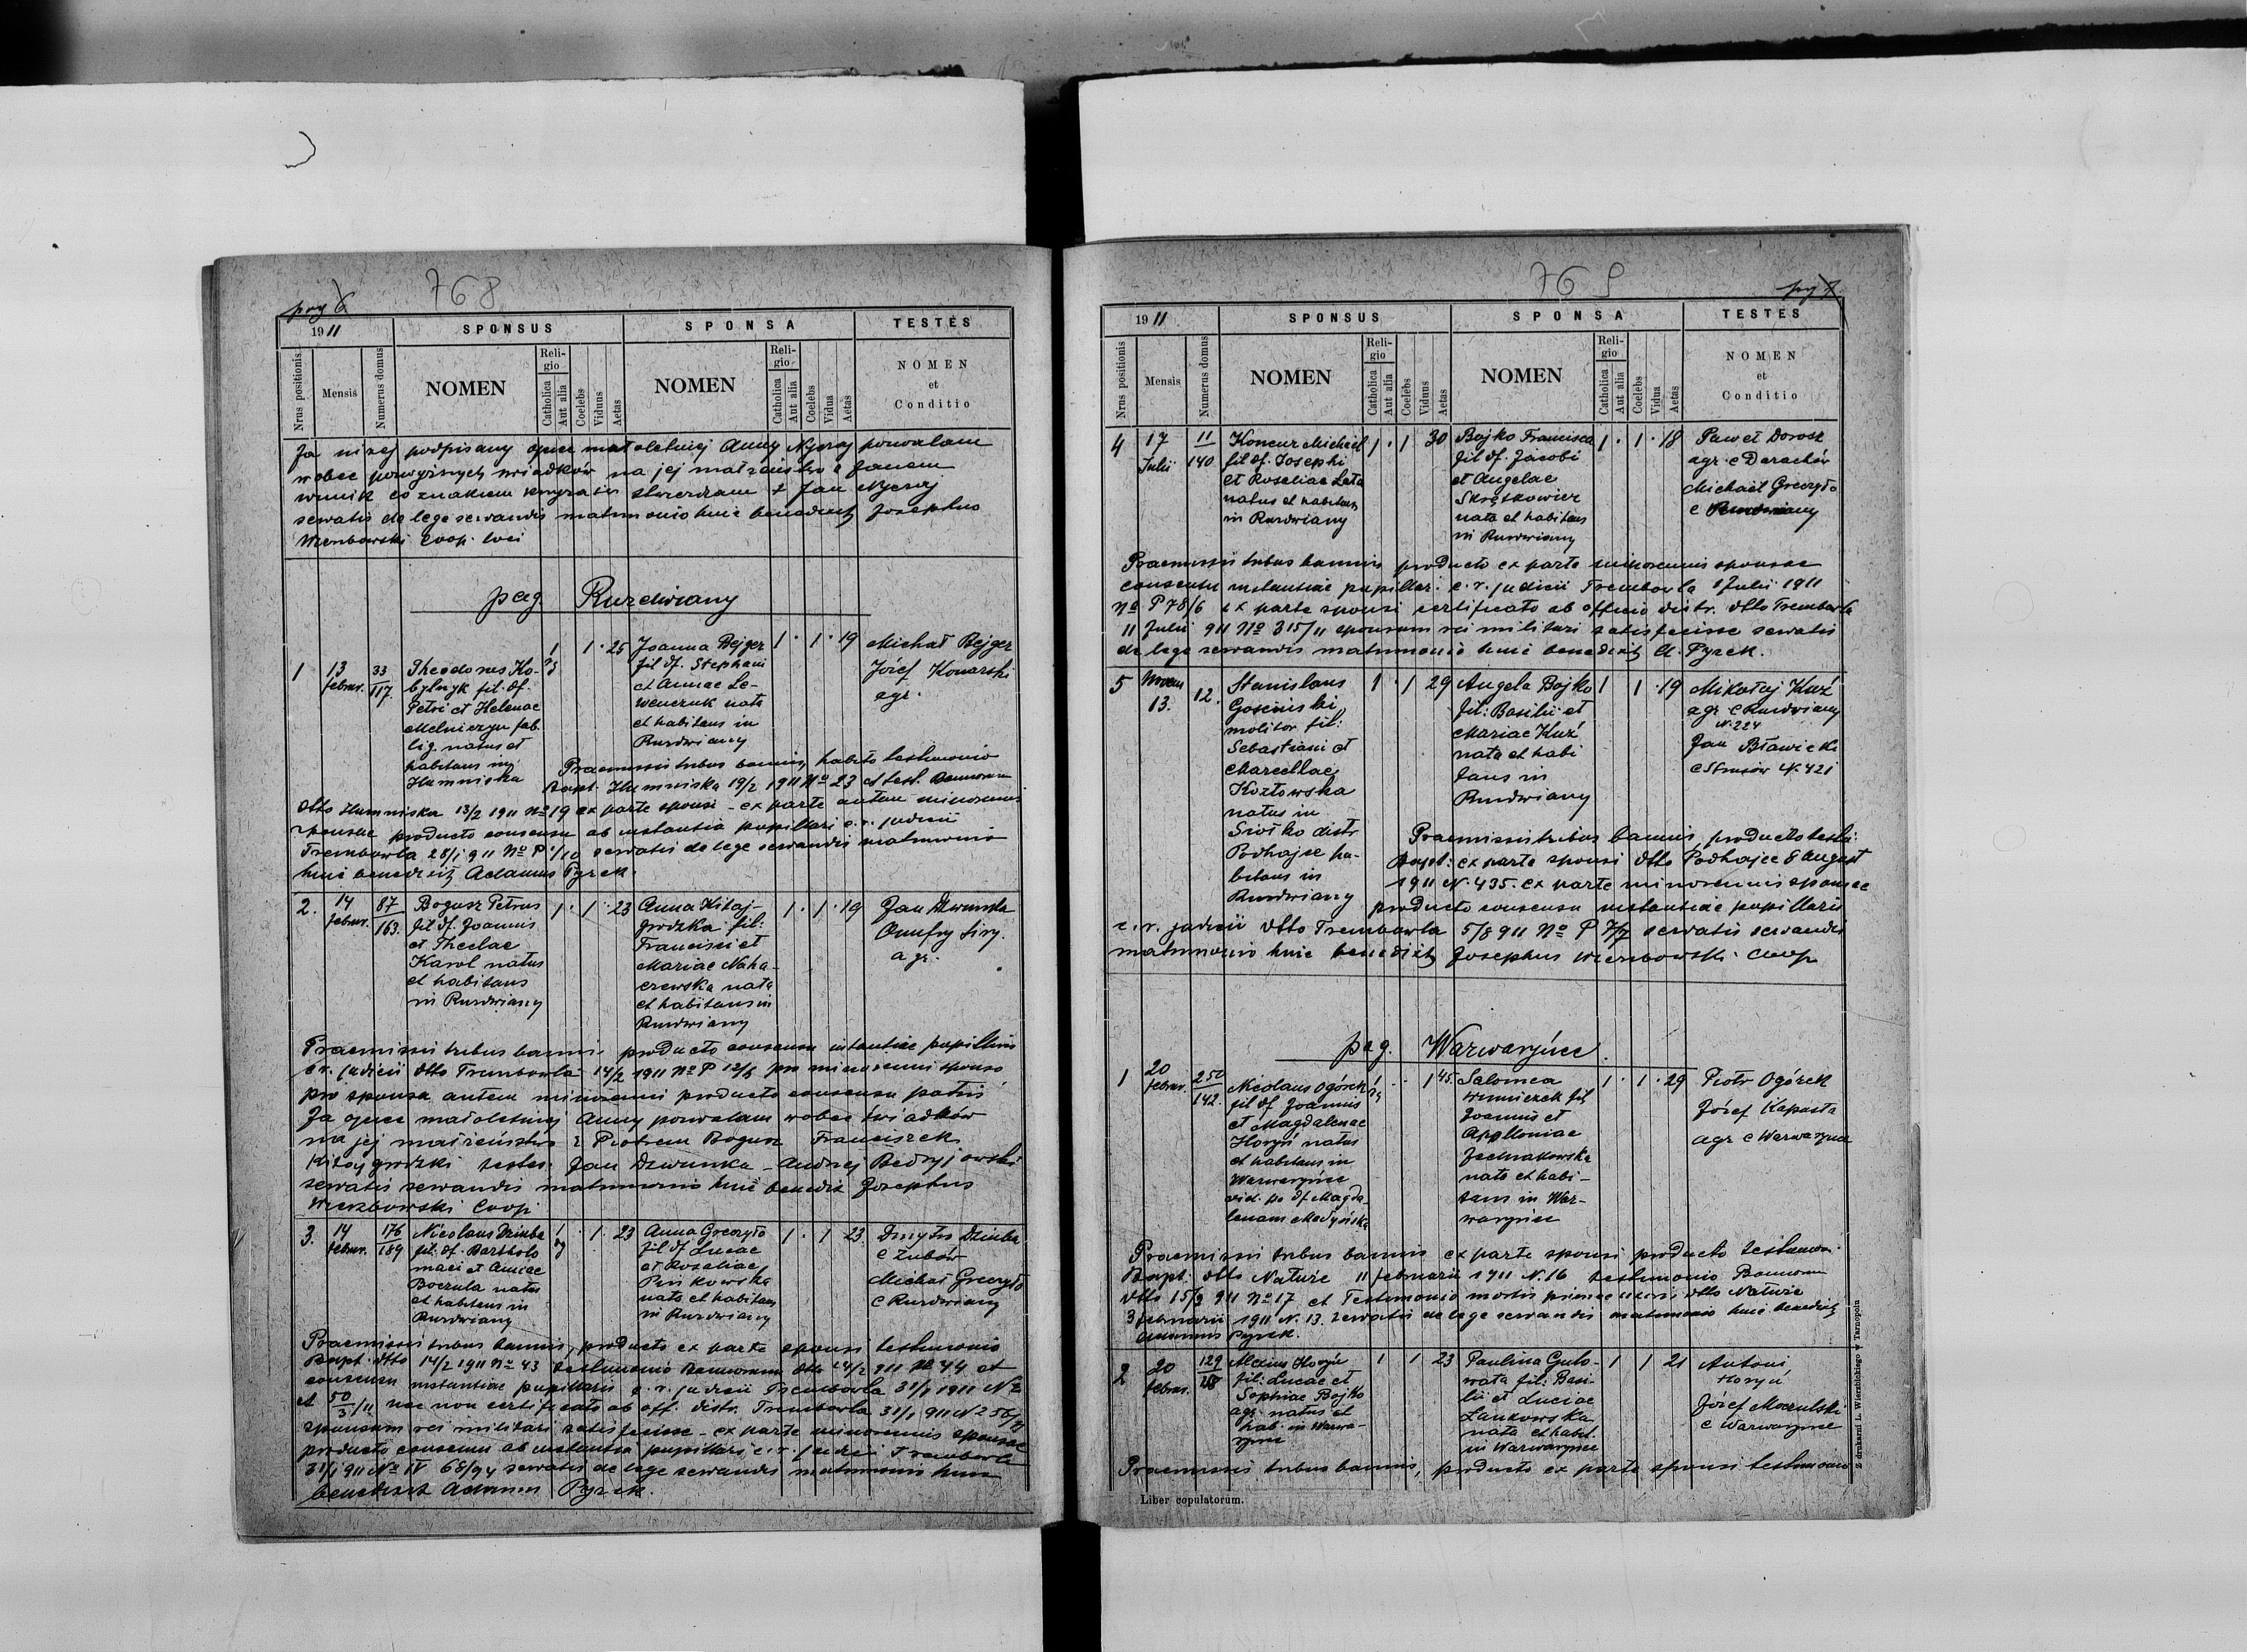 768
pag 6
1911
SPONSUS
SPONSA
TESTES
Nrus positionis
Mensis
Numerus domus
NOMEN
Religio
Catholica
Aut alia
Coelebs
Viduus
Aetas
NOMEN
Religio
Catholica
Aut alia
Coelebs
Vidua
Aetas
NOMEN
et
Conditio
Ja niżej podpisany ojciec małoletniej Anny Nyczaj pozwalam
wobec powyższych świadków na jej małżeństwo z Janem
co znakiem krzyża stwierdzam + Jan Nyczaj
servatis de lege servandis matrimonio huic benedixit Josephus
Wierzbowski Coop. loci
pag. Ruzdwiany
1
13
februr.
33
117
Theodorus Ko-
bylnyk fil. df.
Petri et Helenae
Melniczyn fab.
lig. natus et
habitans in
Humniska
1
1 · 25
Joanna Bejger
fil df. Stephani
et Annae Le-
wenczuk nata
et habitans in
Ruzdwiany
1 · 1 · 19
Michał Bejger
Józef Konarski
agr.
Praemissis tribus bannis, habito testimonio
Bapt. Humniska 19/2 1911 No 23 et test. Bannorum
dtto Humniska 13/2 1911 No 19 ex parte sponsi - ex parte autem minorennis
sponsae producto consensu ab instantia pupillari c. r. judicii
Trembowla 28/1 911 No P 1/10 servatis de lege servandis matrimonio
huic benedixit Adamus Pyrek.
2.
14
februr.
87
163.
Bogusz Petrus
fil df. Joannis
et Theclae
Karol natus
et habitans
in Ruzdwiany
1 · 1 · 23
Anna Kitaj-
grodzka fil:
Francisci et
Mariae Naha-
czewska nata
et habitans in
Ruzdwiany
1 · 1 · 19
Jan Dziwunka
Onufry Siry.
agr.
Praemissis tribus bannis producto consensu instantiae pupillaris
c. r. judicii dtto Trembowla 14/2 1911 No P 12/6 pro minorenni sponso
pro sponsa autem minorenni producto consensu patris
Ja ojciec małoletniej Anny pozwalam wobec świadków
na jej małżeństwo z Piotrem Bogusz Franciszek
Kitajgrodzki testes: Jan Dziwunka - Andrzej Bedryjowski
servatis servandis matrimonio huic benedix Josephus
Wierzbowski Coop
3.
14
februr.
176
189
Nicolaus Dziuba
fil. df. Bartholo
maei et Annae
Boczula natus
et habitans in
Ruzdwiany
1
1 · 23
Anna Greczyło
fil df Lucae
et Rosaliae
nata et habitans
in Ruzdwiany
1 · 1 23
Dmytro Dziuba
e Zubów
Michał Greczyło
e Ruzdwiany
Praemissis tribus bannis, producto ex parte sponsi testimonio
Bapt. dtto 14/2 1911 No 43 testimonio Bannorum dtto 14/2 911 No 44 et
consensu instantiae pupillaris c. r. judicii Trembowla 31/1 1911 No
50/3/11 nec non certificato ab off. distr. Trembowla 31/1 911 N 256/11
sponsum rei militari satisfecisse - ex parte minorennis sponsae
producto consensu ab instantia pupillari c. r. judicii Trembowla
31/1 911 No IV 68/94 servatis de lege servandis matrimonio huic
benedixit Adamus Pyrek.
769
pag 7
1911
SPONSUS
SPONSA
TESTES
Nrus positionis
Mensis
Numerus domus
NOMEN
Religio
Catholica
Aut alia
Coelebs
Viduus
Aetas
NOMEN
Religio
Catholica
Aut alia
Coelebs
Vidua
Aetas
NOMEN
et
Conditio
4
17
Julii
11
140
Koncur Michael
fil df. Josephi
et Rosaliae Leta
natus et habitans
in Ruzdwiany
1 · 1 30
Bojko Francisca
fil df. Jacobi
et Angelae
Skrętkowicz
nata et habitans
in Ruzdwiany
1 · 1 · 18
Paweł Dorosz
agr. e Darachów
Michael Greczyło
e Ruzdwiany
Praemissis tribus bannis producto ex parte minorennis sponsae
consensu instantiae pupillar. c. r. judicii Trembowla 1 Julii 1911
No P 78/6 ex parte sponsi certificato ab officio distr. dtto Trembowla
11 Julii 911 No 315/11 sponsum rei militari satisfecisse servatis
de lege servandis matrimonio huic benedixit A. Pyrek.
5
13.
12.
Stanislaus
Gosciński
molitor fil:
Sebastiani et
Marcellae
Kozłowska
natus in
Siółko distr
Podhajce ha-
bitans in
Ruzdwiany
1 · 1 29
Angela Bojko
fil: Basilii et
Mariae Kuź
nata et habi
tans in
Ruzdwiany
1 1 · 19
Mikołaj Kuź
agr. e Ruzdwiany
N. 224
Jan Bławicki
e Strusów N. 421
Praemissis tribus bannis, producto testi:
Bapt: ex parte sponsi dtto Podhajce 8 August
1911 N. 435. ex parte minorennis sponsae
producto consensu instantiae pupillaris
c. r. judicii dtto Trembowla 5/8 911 No P 7/7 servatis servandis
matrimonio huic benedixit Josephus Wierzbowski Coop
pag. Warwaryńce.
1
20
februr.
250
142.
Nicolaus Ogórek
fil df Joannis
et Magdalenae
Horyń natus
et habitans in
Warwaryńce
vid. po df Magda-
lenam Medyńska
1
1 45.
Salomea
fil
Joannis et
Apolloniae
Jednakowska
nata et habi-
tans in War-
warynce
1 · 1 · 29
Piotr Ogórek
Józef Kapusta
agr e Warwarynce
Praemissis tribus bannis ex parte sponsi producto testimon.
Bapt. dtto Nałuże 11 februarii 1911 N. 16 testimonio Bannorum
dtto 15/2 911 No 17 et Testimonio mortis primae uxoris dtto Nałuże
3 februarii 1911 N. 13. servatis de lege servandis matrimonio huic benedixit
Adamus Pyrek.
2
20
februr.
129
218
Alexius Horyń
fil: Lucae et
Sophiae Bojko
agr. natus et
hab. in Warwa-
rynce
1 1 23
Paulina Gulo-
wata fil: Basi-
lii et Luciae
Lankowska
nata et habit.
in Warwarynce
1 1 21
Antoni
Horyń
Józef Moczulski
e Warwarynce
Praemissis tribus bannis, producto ex parte sponsi testimonio
Liber copulatorum.
Z drukarni L. Wierzbickiego w Tarnopolu